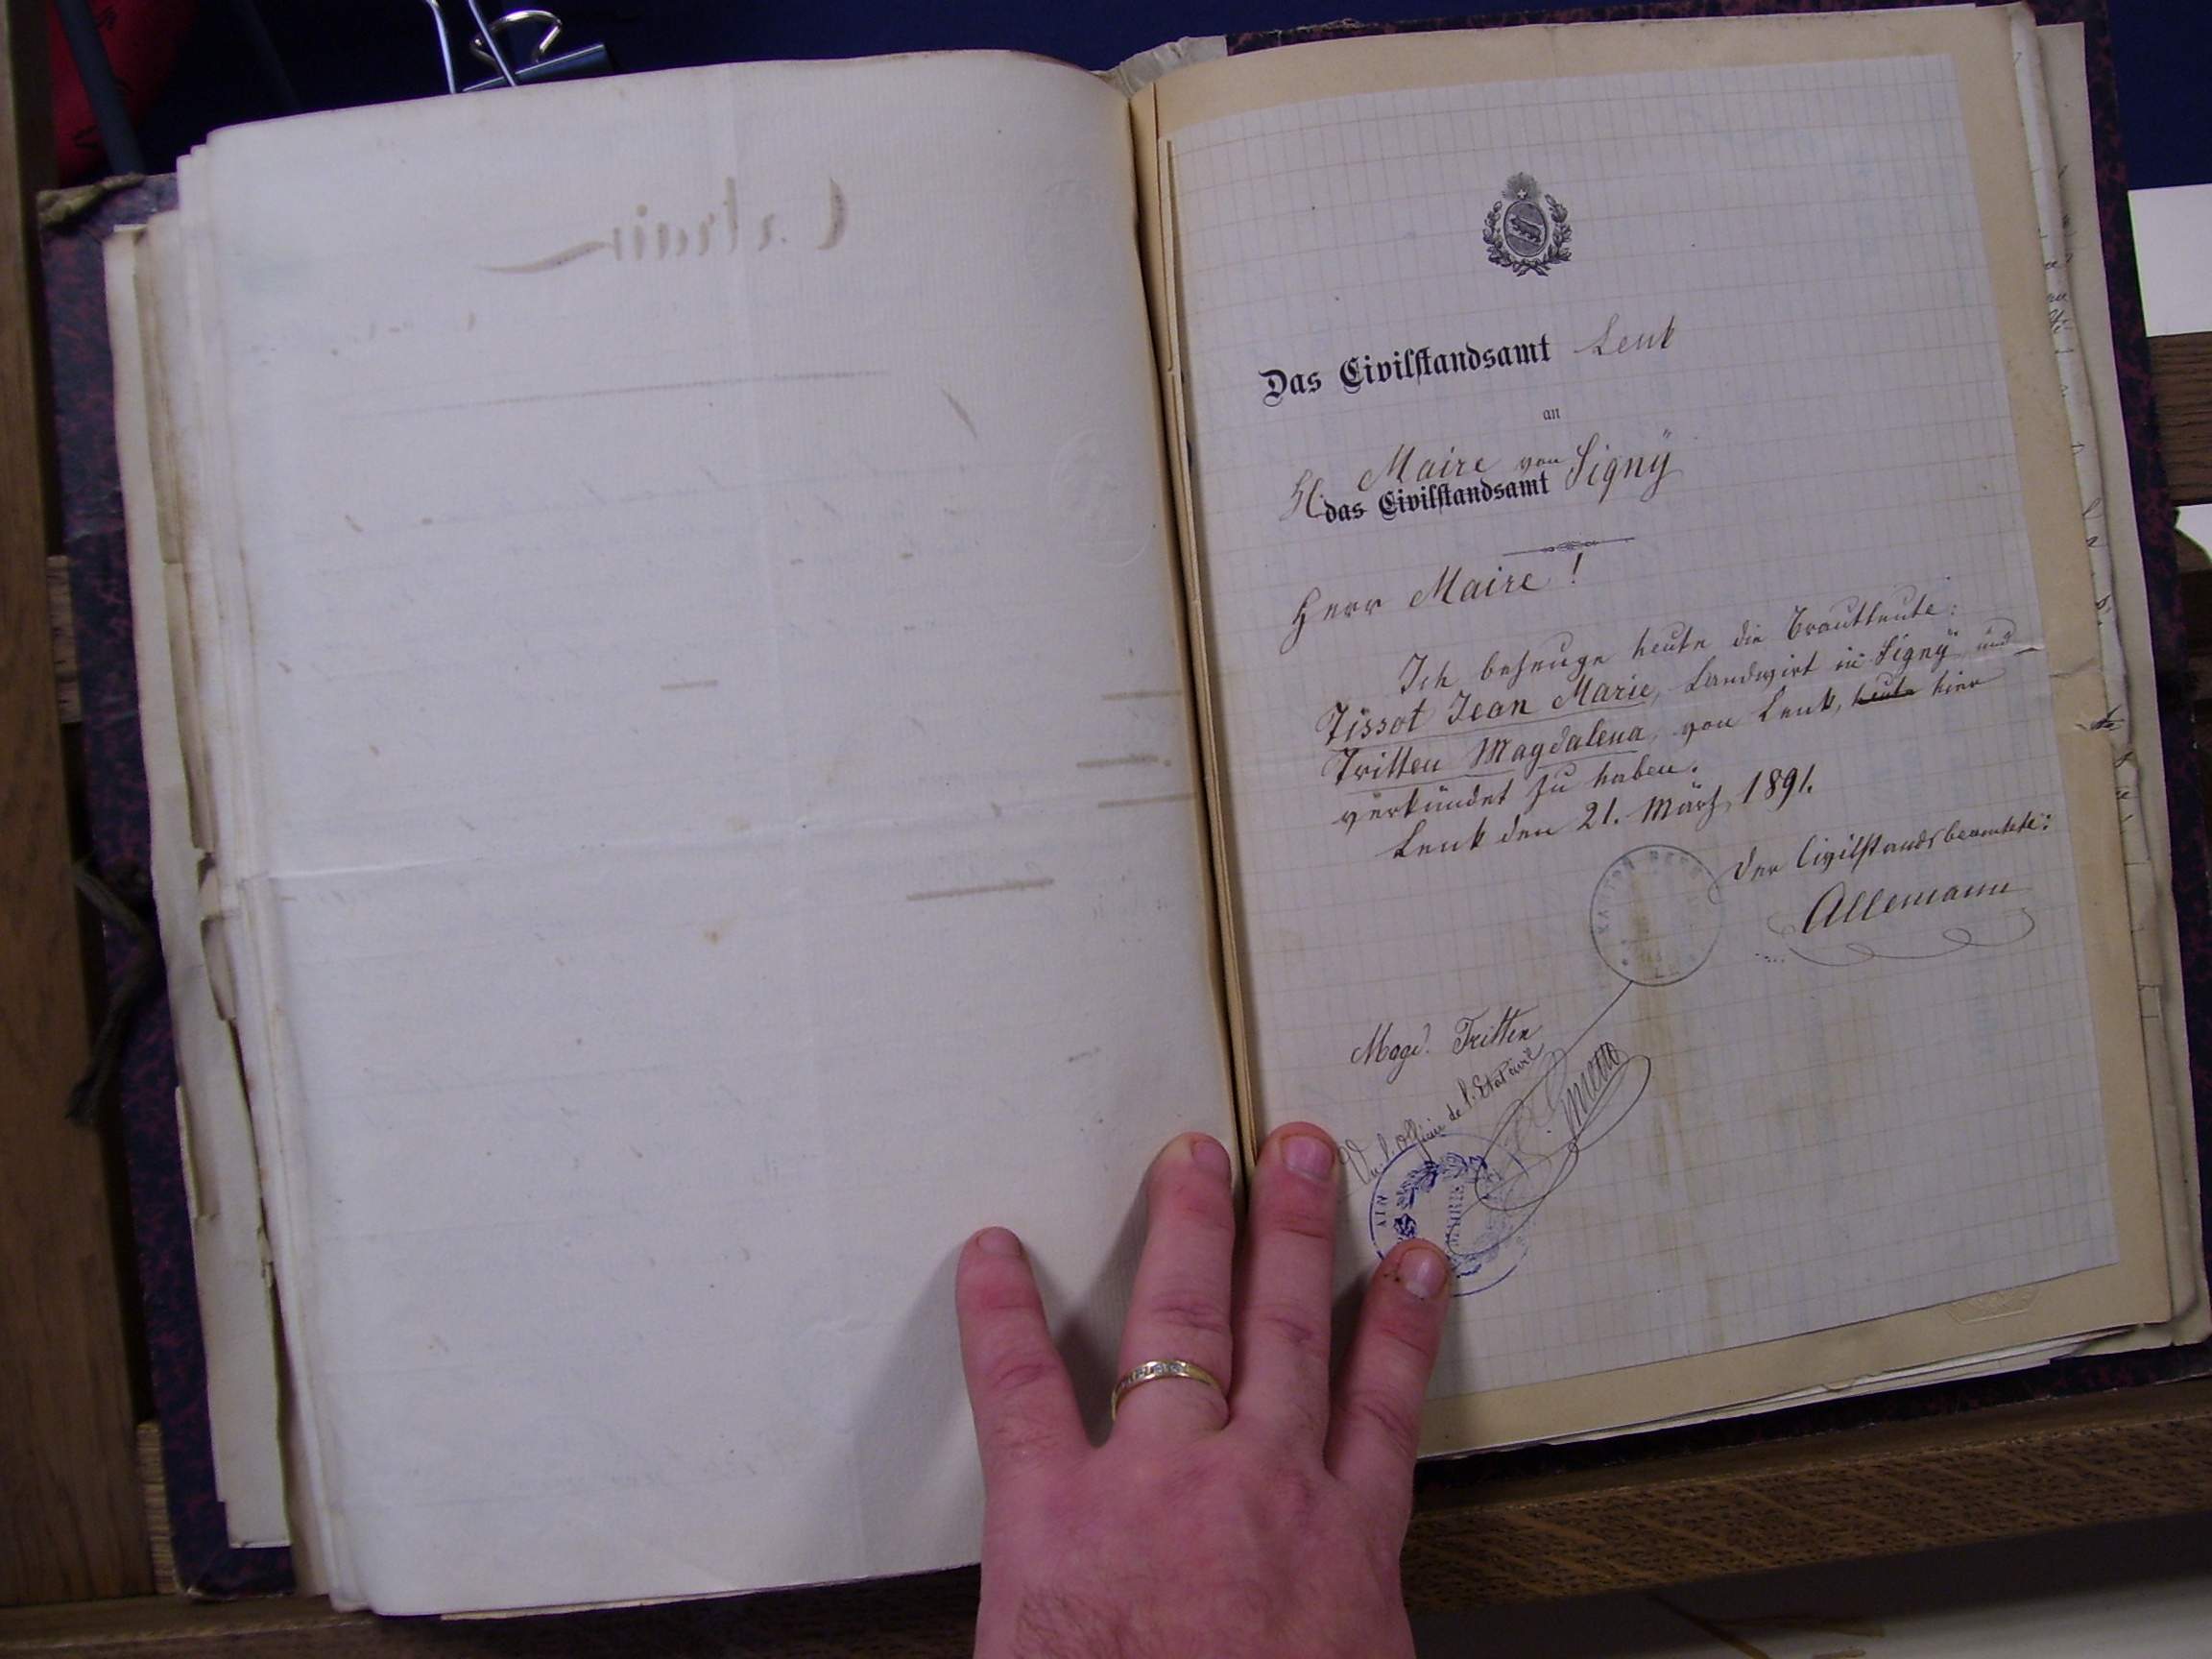 Das Civilstandsamt Lenk
an
H. Maire von Signÿ
das Civilstandsamt
Herr Maire !
Ich bezeuge heute die Brautleute:
Tissot Jean Marie, Landwirt in Signÿ und
Tritten Magdalena, von Lenk, heute hier
verkündet zu haben.
Lenk den 21. März 1891.
Der Civilstandsbeamtete:
Allemann
KANTON BERN
Magd. Tritten
Vu. l'Officier de l'Etat civil
AIN
MAIRIE